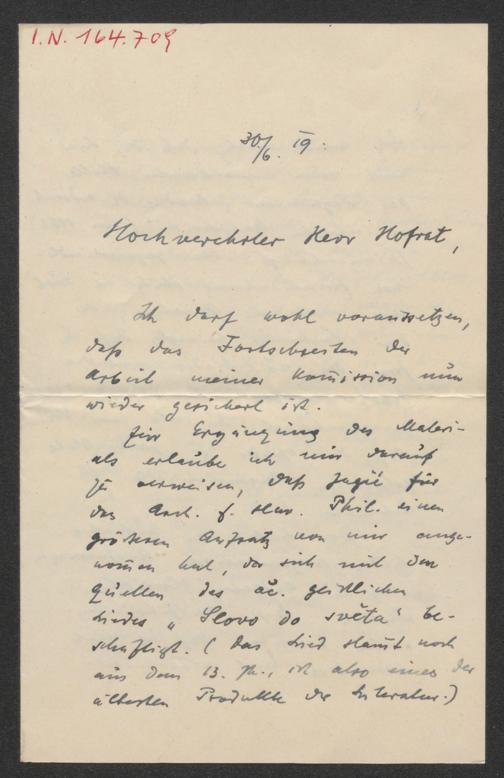 I.N. 164.709
30./6. 19.
Hochverehrter Herr Hofrat,
Ich darf wohl voraussetzen,
daß das Fortschreiten der
Arbeit meiner Kom̅ission nun
wieder gesichert ist.
Zur Ergänzung des Materi-
als erlaube ich mir darauf
zu verweisen, daß Jagić für
das Arch. f. slav. Phil. einen
grösseren Aufsatz von mir ange-
nom̅en hat, der sich mit den
Quellen des ač. geistlichen
Liedes „Slovo do světa“ be-
schäftigt. (Das Lied stam̅t noch
aus dem 13. Jh., ist also eines der
ältesten Produkte der Literatur.)